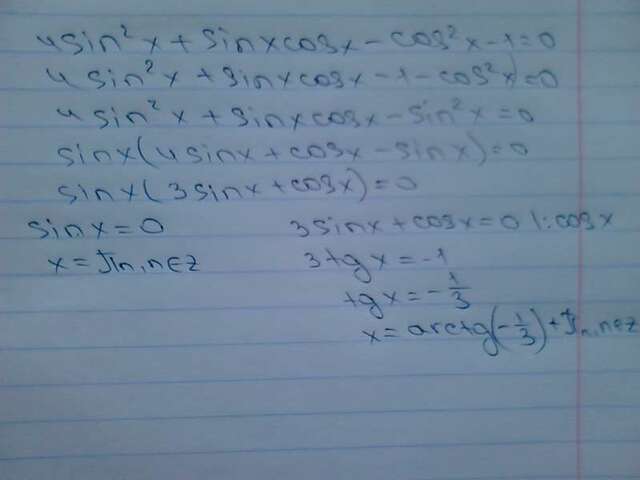 4sin²x + sinxcosx - cos²x - 1 = 0
4sin²x + sinxcosx - 1 - cos²x) = 0
4sin²x + sinxcosx - sin²x = 0
sinx(4sinx + cosx - sinx) = 0
sinx(3sinx + cosx) = 0
sinx = 0 3sinx + cosx = 0 |:cosx
x = πn, n∈z 3tgx = -1
tgx = -1/3
x = arctg(-1/3) + πn, n∈z